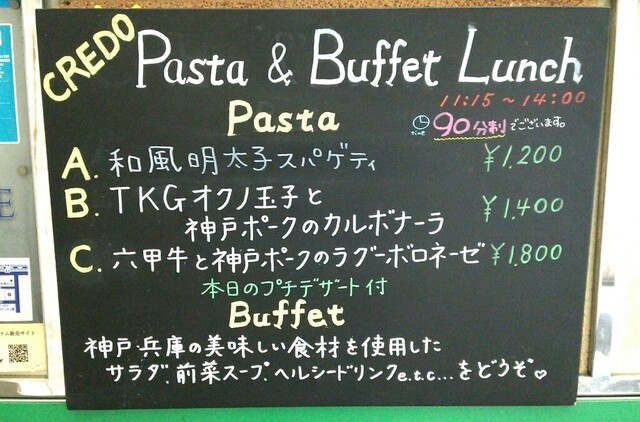 CREDO
Pasta & Buffet Lunch
11:15〜14:00
Pasta
Time 90分制でございます。
A. 和風明太子スパゲティ ¥1.200
B. TKGオクノ玉子と
神戸ポークのカルボナーラ ¥1.400
C. 六甲牛と神戸ポークのラグーボロネーゼ ¥1.800
本日のプチデザート付
Buffet
神戸・兵庫の美味しい食材を使用した
サラダ.前菜スープ.ヘルシードリンクe.t.c...をどうぞ♡